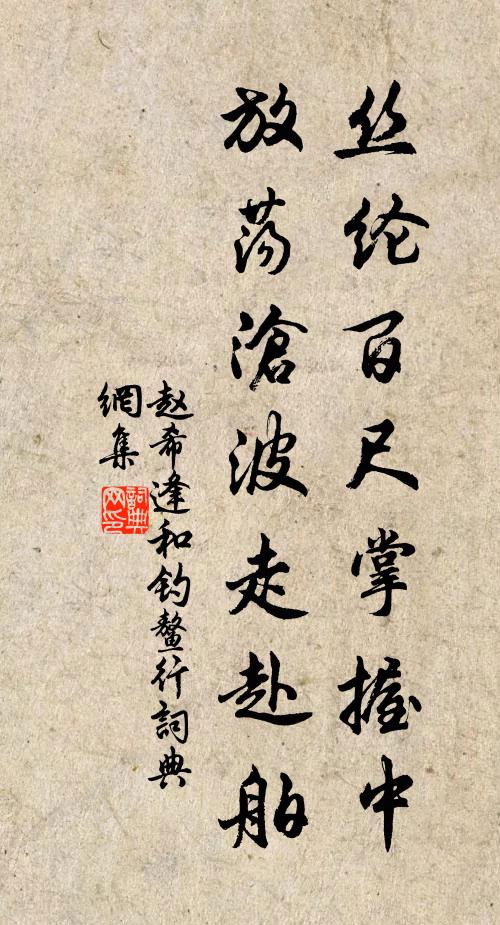 丝纶百尺掌握中
放荡滄波走赴舶
赵希逢和钓鳌行詞典
網集
詞典网印